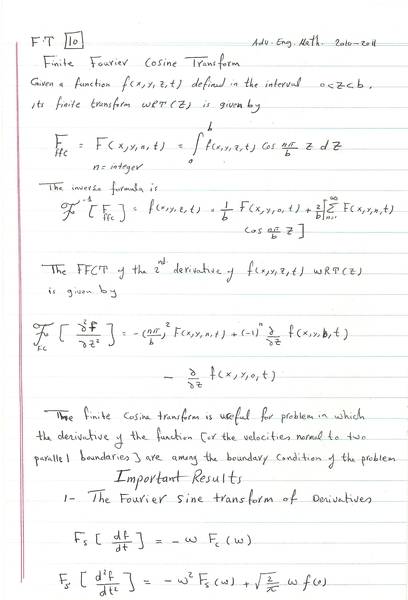 FT 10 Adv. Eng. Math. 2010-2011
Finite Fourier Cosine Transform
Given a function f(x,y,z,t) defined in the interval 0<z<b,
its finite transform WRT (Z) is given by
F_ffc = F(x,y,n,t) = ∫_0^b f(x,y,z,t) Cos nπ/b z dz
n = integer
The inverse formula is
ℱ^-1 [F_ffc] = f(x,y,z,t) = 1/b F(x,y,0,t) + 2/b [∑_{n=1}^∞ F(x,y,n,t)
Cos nπ/b z]
The FFCT of the 2nd derivative of f(x,y,z,t) WRT (Z)
is given by
ℱ_FC [∂²f/∂z²] = -(nπ/b)² F(x,y,n,t) + (-1)^n ∂/∂z f(x,y,b,t)
- ∂/∂z f(x,y,0,t)
The finite cosine transform is useful for problem in which
the derivative of the function [or the velocities normal to two
parallel boundaries] are among the boundary condition of the problem
Important Results
1- The Fourier sine transform of Derivatives
F_s [df/dt] = -ω F_c(ω)
F_s [d²f/dt²] = -ω² F_s(ω) + √(2/π) ω f(0)